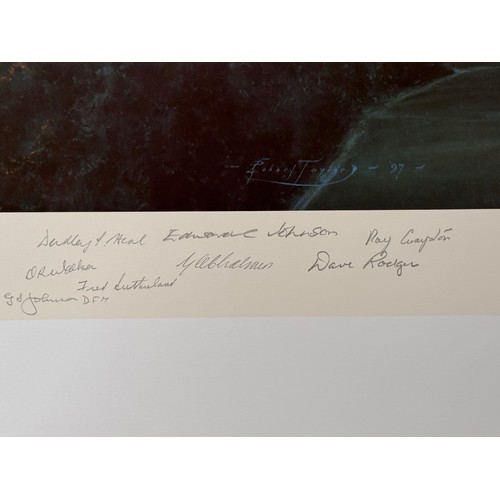 - Robert Taylor - 97 -
Dudley P. Heal Edward C Johnson Ray Grayston
D R Walker Chalmers Dave Rodger
Fred Sutherland
G L Johnson DFM